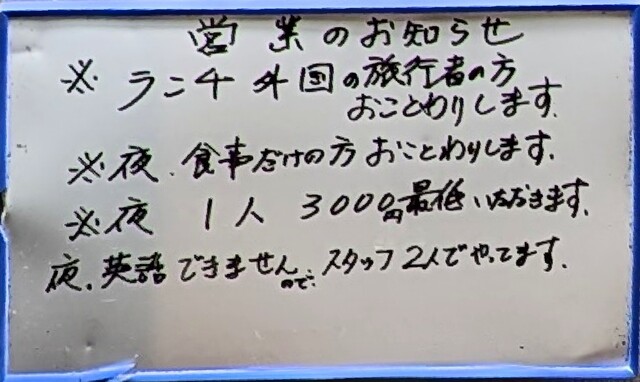 営業のお知らせ
※ ランチ 外国の旅行者の方
おことわりします.
※夜. 食事だけの方 おことわりします.
※夜 1人 3000円最低いただきます.
夜. 英語できませんので: スタッフ2人でやってます.